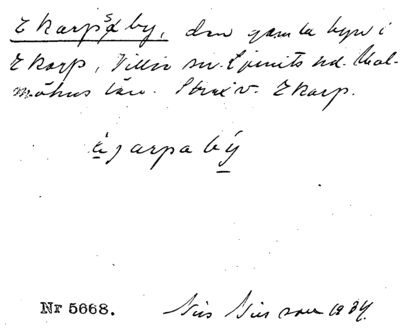 Ekarpsby, den gamla byn i
Ekarp, Villie sn. Ljunits hd. Mal-
möhus län. Strax v. Ekarp.
ẹjarpabý
Nr 5668.
Nils Nilsson 1934.